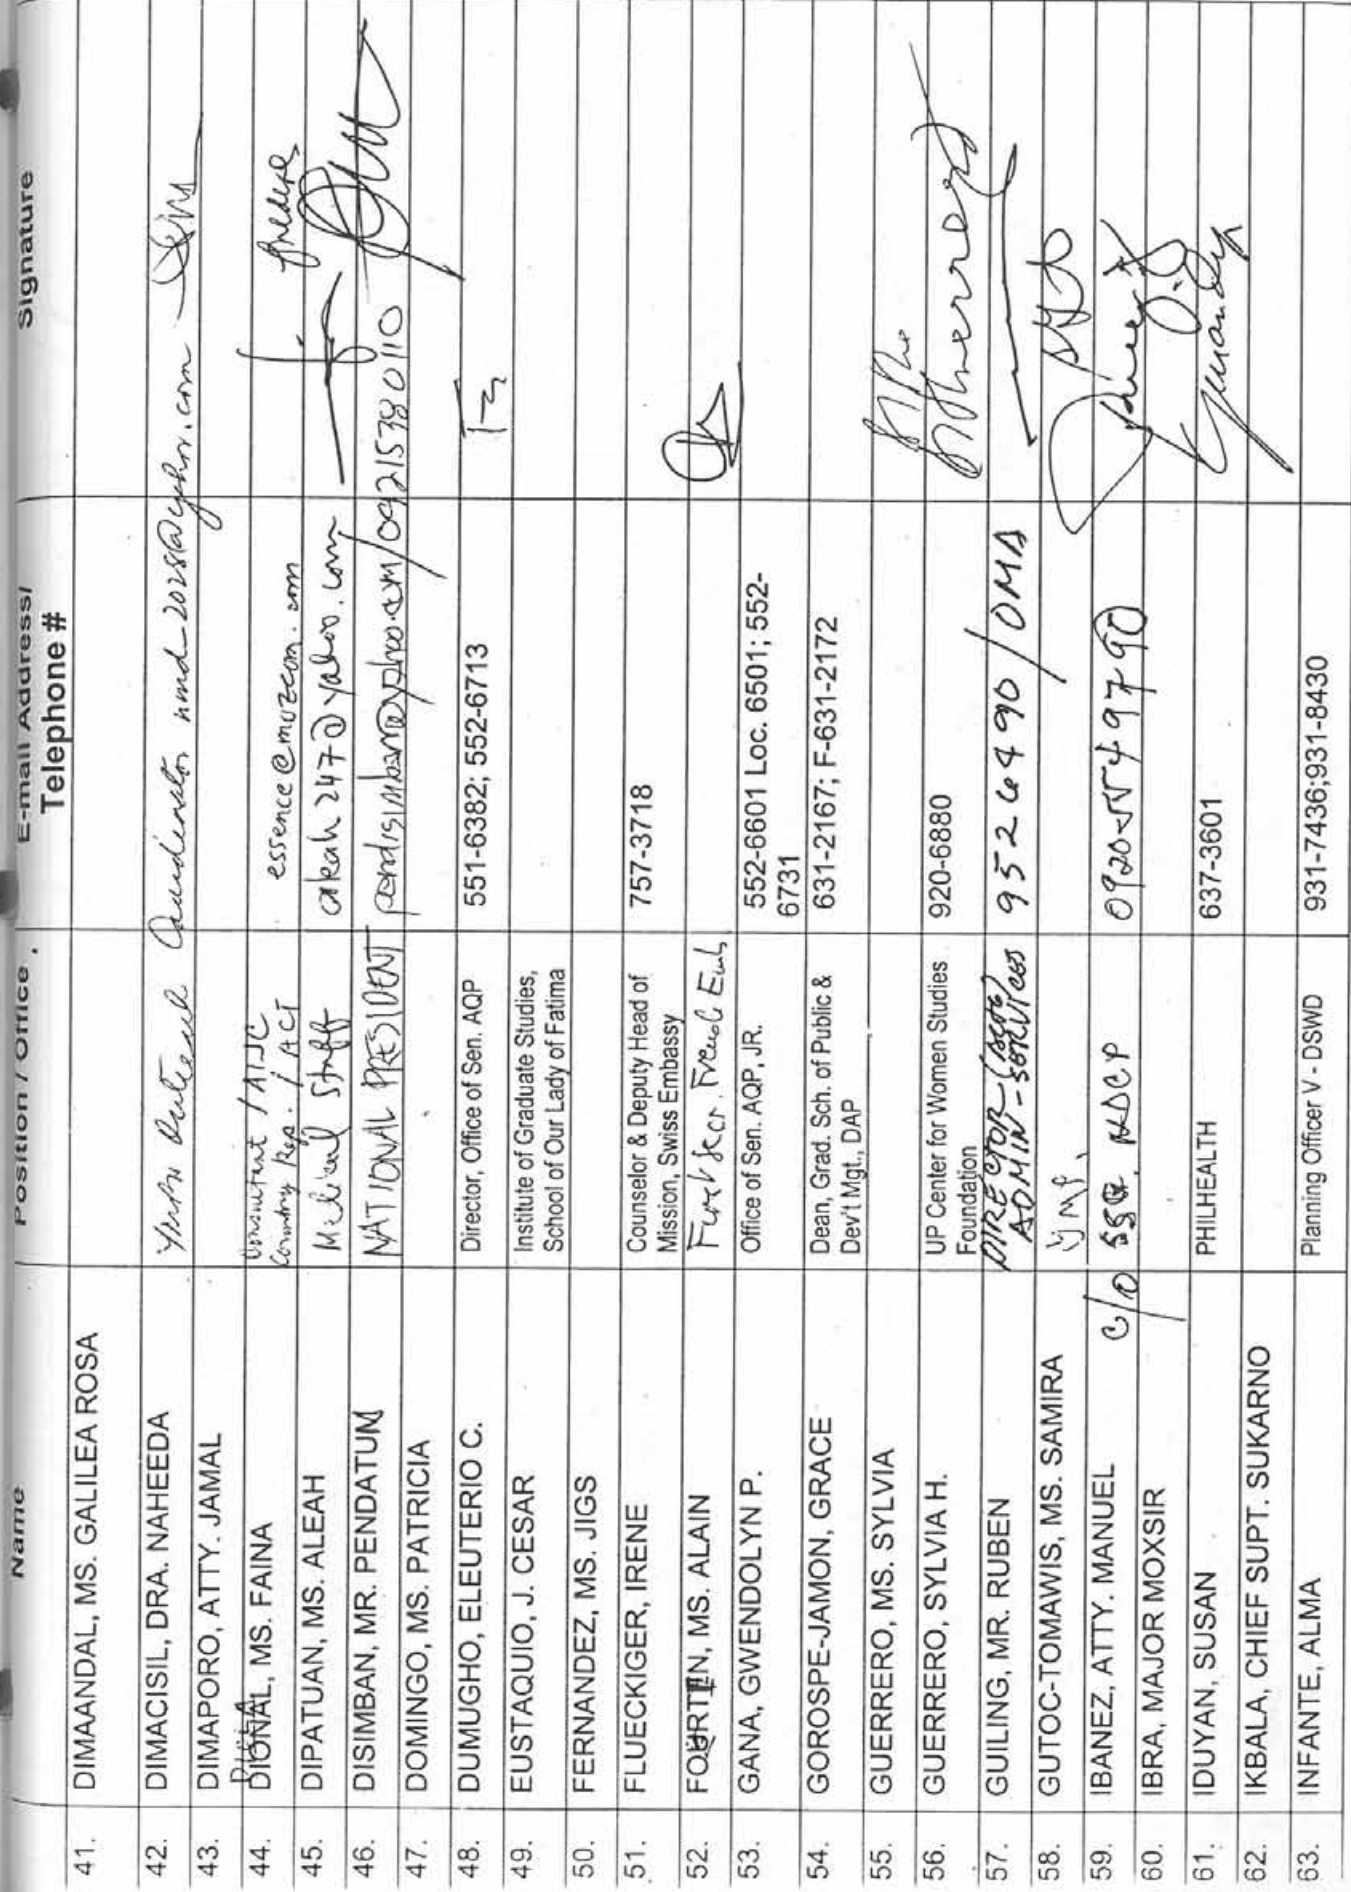 Name Position / Office E-mail Address/ Signature
Telephone #
41. DIMAANDAL, MS. GALILEA ROSA
42. DIMACISIL, DRA. NAHEEDA
43. DIMAPORO, ATTY. JAMAL
44. DIONAL, MS. FAINA Consultant / AIJC essence@mozcom.com
Country Rep. / ACT
45. DIPATUAN, MS. ALEAH Medical Staff akeah247@yahoo.com
46. DISIMBAN, MR. PENDATUM NATIONAL PRESIDENT 09215780110
47. DOMINGO, MS. PATRICIA
48. DUMUGHO, ELEUTERIO C. Director, Office of Sen. AQP 551-6382; 552-6713
49. EUSTAQUIO, J. CESAR Institute of Graduate Studies,
School of Our Lady of Fatima
50. FERNANDEZ, MS. JIGS
51. FLUECKIGER, IRENE Counselor & Deputy Head of 757-3718
Mission, Swiss Embassy
52. FOURTIN, MS. ALAIN First Secr. French Emb.
53. GANA, GWENDOLYN P. Office of Sen. AQP, JR. 552-6601 Loc. 6501; 552-
6731
54. GOROSPE-JAMON, GRACE Dean, Grad. Sch. of Public & 631-2167; F-631-2172
Dev't Mgt., DAP
55. GUERRERO, MS. SYLVIA
56. GUERRERO, SYLVIA H. UP Center for Women Studies 920-6880
Foundation
57. GUILING, MR. RUBEN DIRECTOR 9526490 / OMA
ADMIN - SERVICES
58. GUTOC-TOMAWIS, MS. SAMIRA
59. IBANEZ, ATTY. MANUEL c/o NDCP
60. IBRA, MAJOR MOXSIR
61. IDUYAN, SUSAN PHILHEALTH 637-3601
62. IKBALA, CHIEF SUPT. SUKARNO
63. INFANTE, ALMA Planning Officer V - DSWD 931-7436;931-8430